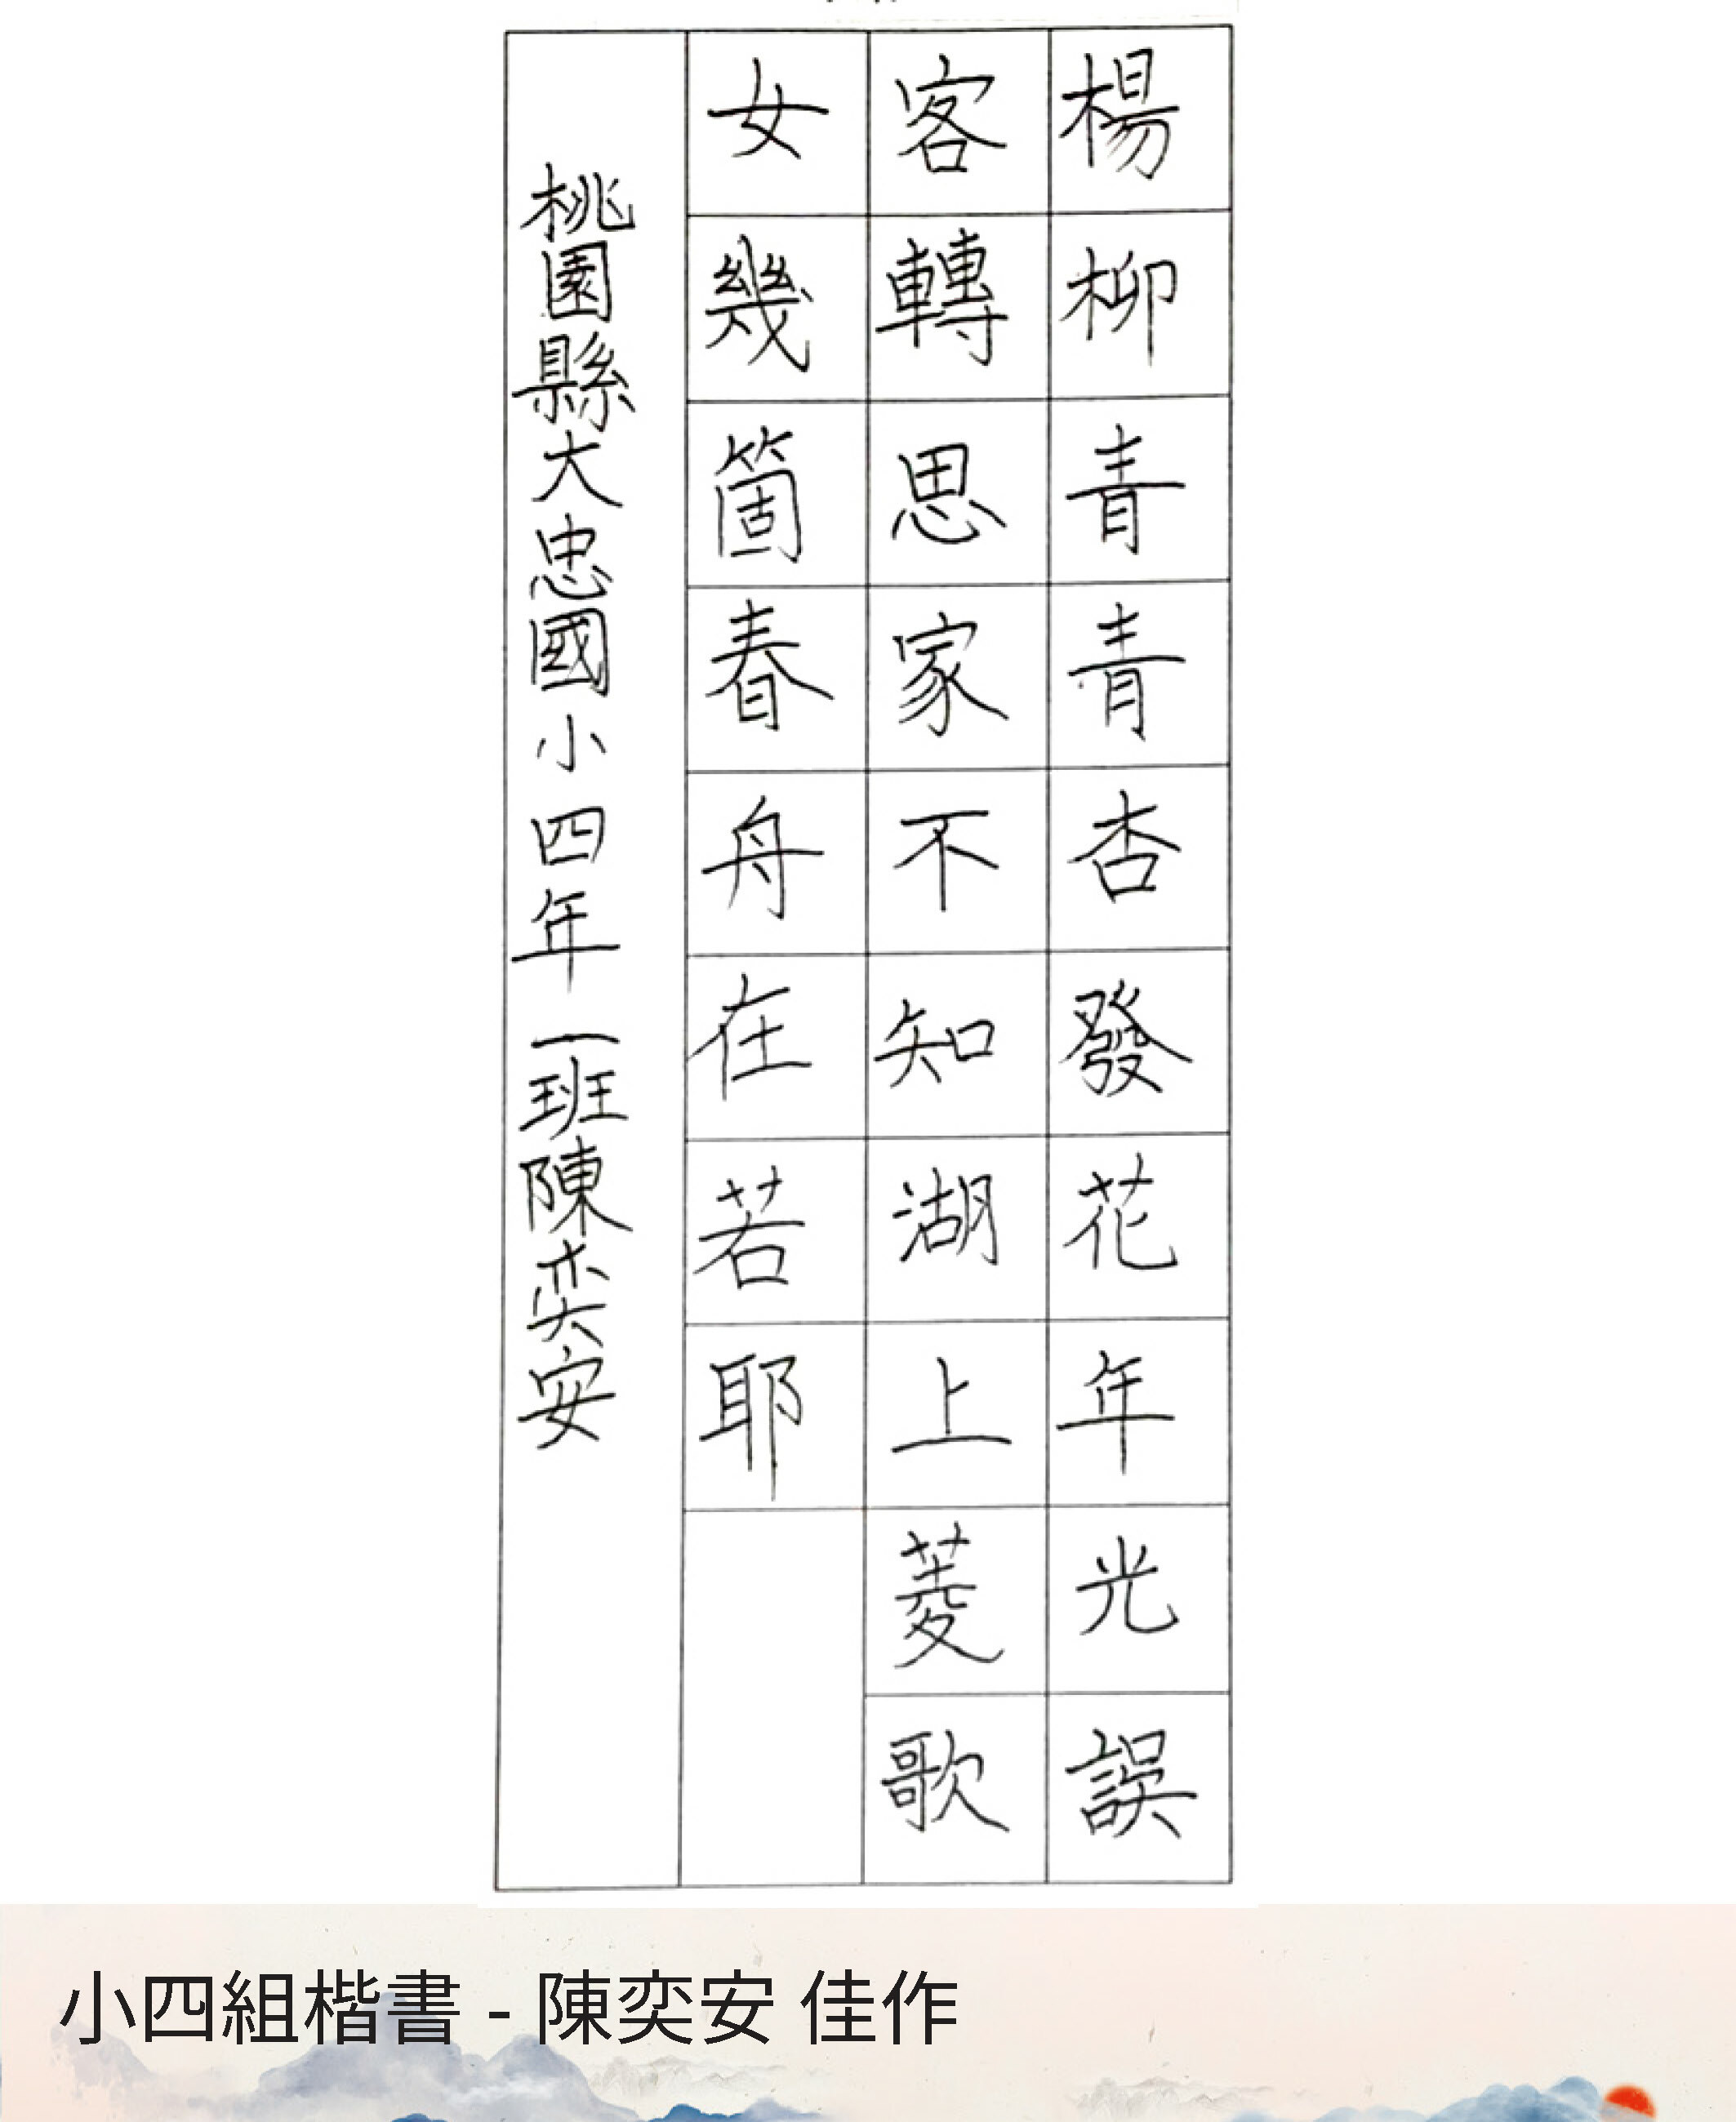 楊柳青青杏發花年光誤
客轉思家不知湖上菱歌
女幾箇春舟在若耶
桃園縣大忠國小四年一班陳奕安
小四組楷書 - 陳奕安 佳作